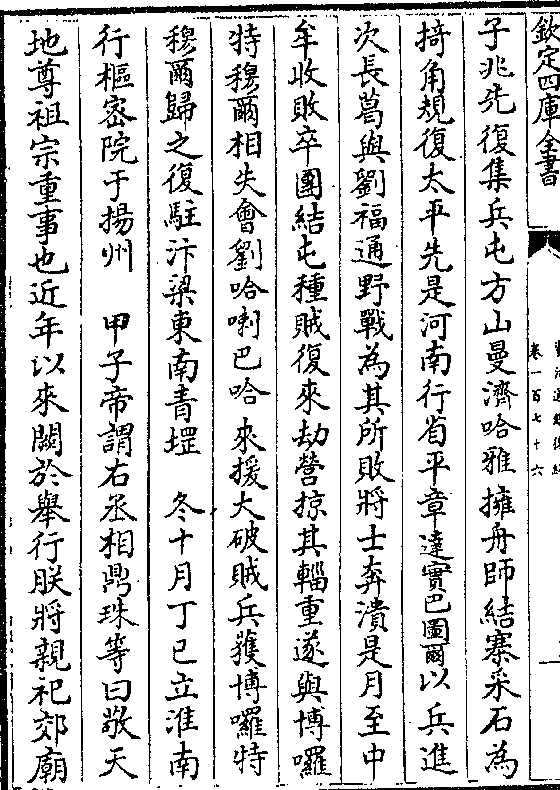 欽定四庫全書
卷一百七十六
子兆先復集兵屯方山曼濟哈雅擁舟師結寨采石為
掎角規復太平先是河南行省平章達實巴圖爾以兵進
次長葛與劉福通野戰為其所敗將士奔潰是月至中
牟收敗卒團結屯種賊復來劫營掠其輜重遂與博囉
特穆爾相失會劉哈喇巴哈來援大破賊兵獲博囉特
穆爾歸之復駐汴梁東南青堽 冬十月丁巳立淮南
行樞密院于揚州 甲子帝謂右丞相鼎珠等曰敬天
地尊祖宗重事也近年以來闕於舉行朕將親祀郊廟